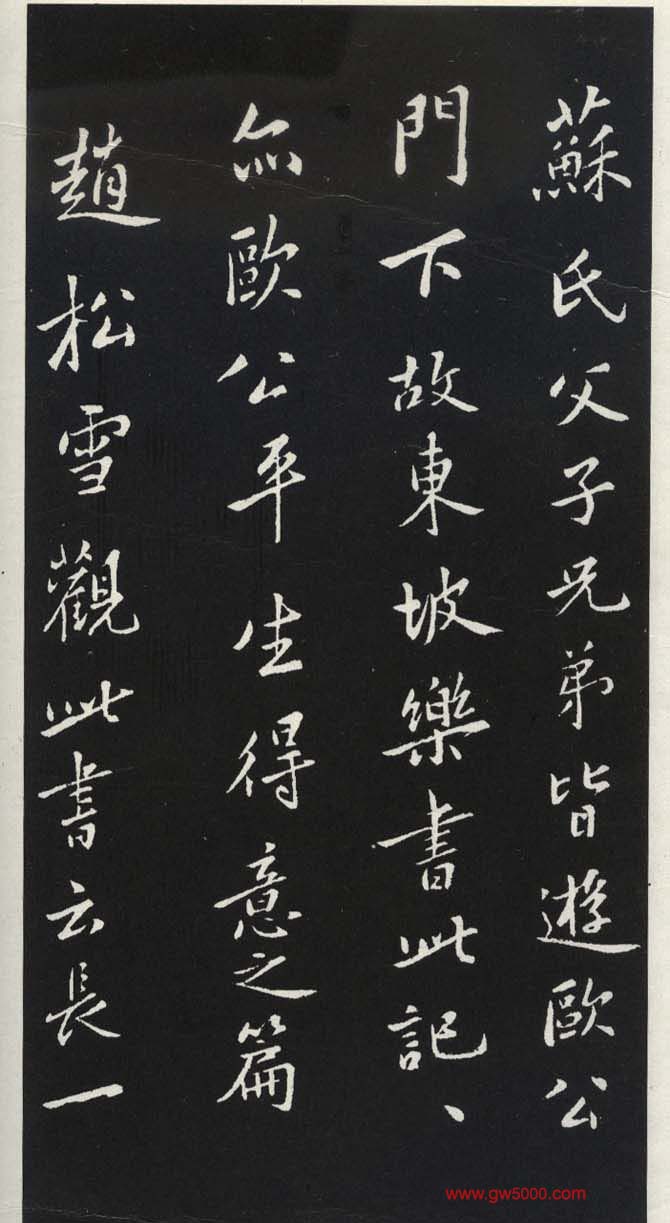 蘇氏父子兄弟皆遊歐公
門下故東坡樂書此記、
亦歐公平生得意之篇
趙松雪觀此書云長一
www.gw5000.com